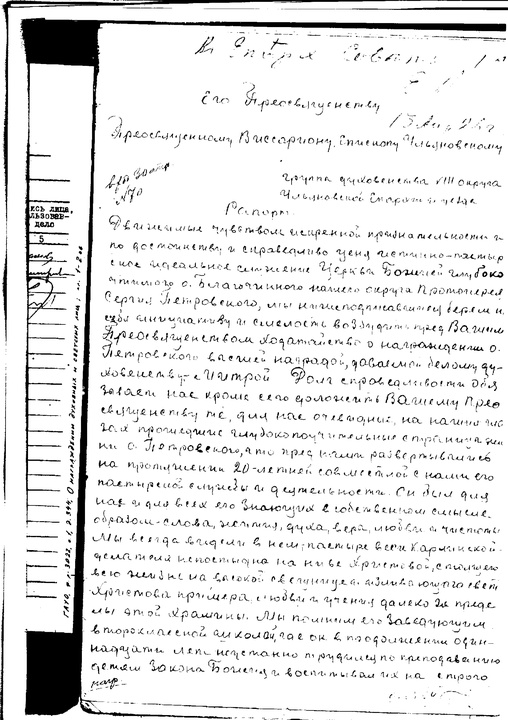 Его Преосвященству
Преосвященному Виссариону, Епископу Ульяновскому
Группа духовенства VIII округа
Ульяновской Епархии и уезда
Рапорт.
Движимые чувством искренней признательности и
по достоинству и справедливо ценя истинно-пастыр
ское идеальное служение Церкви Божией глубоко
чтимого о. Благочинного нашего округа Протоиерея
Сергия Петровского, мы нижеподписавшиеся берем на
себя инициативу и смелость возбудить пред Вашим
Преосвященством ходатайство о награждении о.
Петровского высшей наградой, даваемой белому ду-
ховенству – Митрой. Долг справедливости обя
зывает нас кроме сего доложить Вашему Прео
священству те, для нас очевидные, на наших гла
зах прошедшие глубокопоучительные страницы жиз
ни о. Петровского, что пред нами развертывались
на протяжении 20-летней совместной с нами его
пастырской службы и деятельности. Он был для
нас и для всех его знающих в собственном смысле
образом – слова, жития, духа, веры, любви и чистоты
Мы всегда видели в нем, пастыре всей Карлинской
делателя непостыдна на ниве Христовой, стоящего
всю жизнь на высокой свещнице и изливающего свет
Христова примера, любви и учения далеко за преде
лы этой храмины. Мы помним его Заведующим
второклассной школой, где он в продолжении один-
надцати лет неустанно трудился по преподаванию
детям Закона Божия и воспитывал их на строго
5